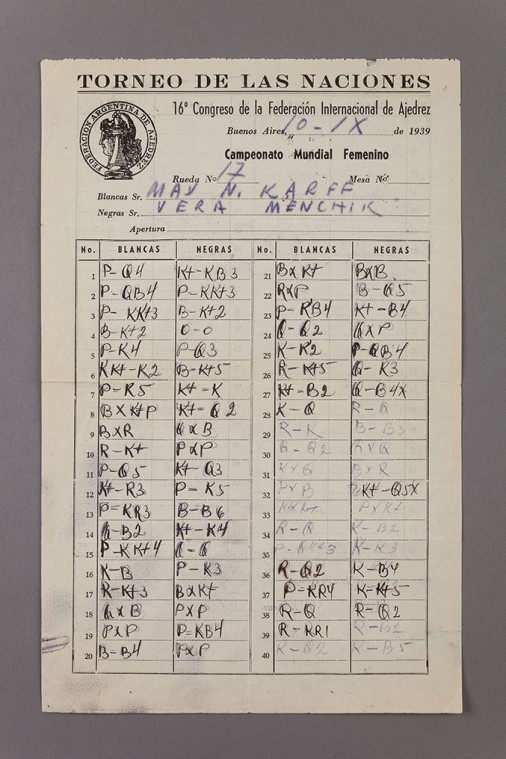 TORNEO DE LAS NACIONES
FEDERACION ARGENTINA DE AJEDREZ
16º Congreso de la Federación Internacional de Ajedrez
Buenos Aires, 10-IX de 1939
Campeonato Mundial Femenino
Rueda Nº 17 Mesa Nº
Blancas Sr. MAY N. KARFF
Negras Sr. VERA MENCHIK
Apertura
No. BLANCAS NEGRAS No. BLANCAS NEGRAS
1 P-Q4 Kt-KB3 21 BxKt BxB
2 P-QB4 P-KKt3 22 RxP B-Q5
3 P-KKt3 B-Kt2 23 P-KB4 Kt-B4
4 B-Kt2 O-O 24 Q-Q2 QxP
5 P-K4 P-Q3 25 K-R2 P-QB4
6 KKt-K2 B-Kt5 26 R-Kt5 Q-K3
7 P-K5 Kt-K 27 Kt-B2 Q-B4X
8 BxKtP Kt-Q2 28 K-Q R-Q
9 BxR QxB 29 R-K B-B3
10 R-Kt PxP 30 Q-Q2 RxQ
11 P-Q5 Kt-Q3 31 KxQ BxR
12 Kt-R3 P-K5 32 PxB Kt-Q5X
13 P-KR3 B-B6 33
14 Q-B2 Kt-K4 34 R-Q K-B2
15 P-KKt4 Q-Q 35 K-K3
16 K-B P-K3 36 R-Q2 K-B4
17 R-Kt3 BxKt 37 P-KR4 K-Kt5
18 QxB PxP 38 R-Q R-Q2
19 PxP P-KB4 39 R-KR1 R-B2
20 B-B4 PxP 40 K-Q2 K-B5